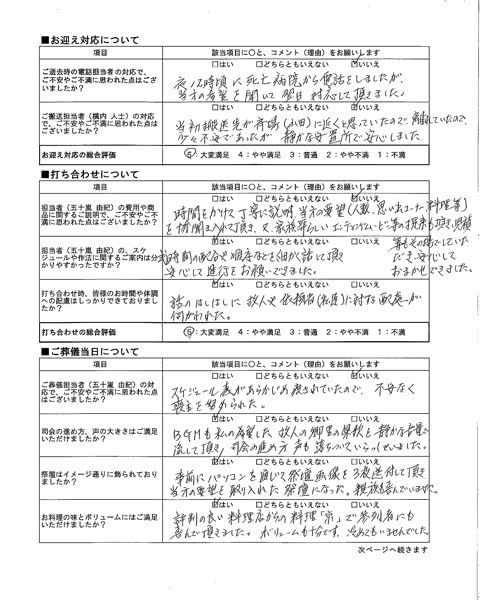 ■お迎え対応について
項目 該当項目に○と、コメント（理由）をお願いします
ご逝去時の電話担当者の対応で、
ご不安やご不満に思われた点はござい
ましたか？
□はい □どちらともいえない ☑いいえ
夜12時頃に死亡病院から電話をしましたが、
当方の希望を聞いて翌日対応して頂きました。
ご搬送担当者（横内 人士）の対応
で、ご不安やご不満に思われた点はご
ざいましたか？
□はい □どちらともいえない ☑いいえ
当初搬送先が斎場(山田)に近くと思っていたので、離れていたので、
少々不安であったが 静かな安置所で安心しました。
お迎え対応の総合評価 ⑤：大変満足 4：やや満足 3：普通 2：やや不満 1：不満
■打ち合わせについて
項目 該当項目に○と、コメント（理由）をお願いします
担当者（五十嵐 由紀）の費用や商
品に関するご説明で、ご不安やご不
満に思われた点はございましたか？
□はい □どちらともいえない ☑いいえ
時間をかけて丁寧に説明、当方の要望(人数、思い出コーナー、料理等)
を協調に入れて頂き、又、家族葬らしいエンディングムービー等の提案も頂き、
担当者（五十嵐 由紀）の、スケ
ジュールや作法に関するご案内は分か
りやすかったですか？
☑はい □どちらともいえない □いいえ
時間の配分や順序などを細かく話して頂き
安心して進行をお願いできました。
等もその場でしていた
だき安心して
おまかせできました。
打ち合わせ時、皆様のお時間や体調
への配慮はしっかりできておりまし
たか？
☑はい □どちらともいえない □いいえ
話のはしはしに故人や依頼者(私達)に対する配慮が
伺がわれた。
打ち合わせの総合評価 ⑤：大変満足 4：やや満足 3：普通 2：やや不満 1：不満
■ご葬儀当日について
項目 該当項目に○と、コメント（理由）をお願いします
ご葬儀担当者（五十嵐 由紀）の対
応で、ご不安やご不満に思われた点
はございましたか？
□はい □どちらともいえない ☑いいえ
スケジュール表があらかじめ渡されていたので、不安なく
喪主を努められた。
司会の進め方、声の大きさはご満足
いただけましたか？
☑はい □どちらともいえない □いいえ
BGMも私の希望した故人の郷里の県歌を静かな音響で
流して頂き、司会の進め方 声も落ちついていらっしゃいました。
祭壇はイメージ通りに飾られており
ましたか？
☑はい □どちらともいえない □いいえ
事前にパソコンを通じて祭壇画像を3度送付して頂き
当方の要望を取り入れた祭壇になった。親族も喜んでいました。
お料理の味とボリュームにはご満足
いただけましたか？
☑はい □どちらともいえない □いいえ
評判の良い料理店からの料理「京」で参列者にも
喜んで頂きました。ボリュームも十分です。冷めてもいませんでした。
次ページへ続きます